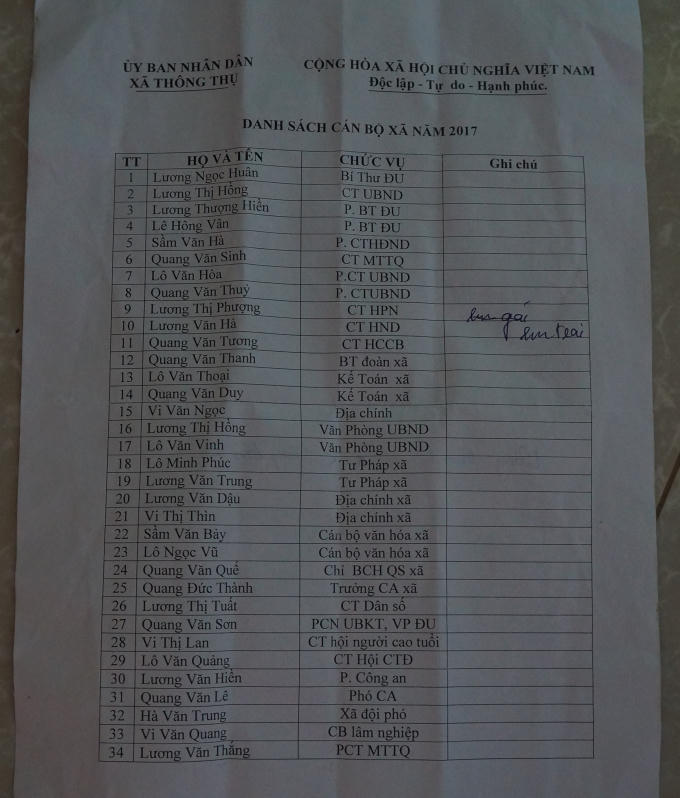 ỦY BAN NHÂN DÂN CỘNG HÒA XÃ HỘI CHỦ NGHĨA VIỆT NAM
XÃ THÔNG THỤ Độc lập - Tự do - Hạnh phúc.
DANH SÁCH CÁN BỘ XÃ NĂM 2017
TT HỌ VÀ TÊN CHỨC VỤ Ghi chú
1 Lương Ngọc Huân Bí Thư ĐU
2 Lương Thị Hồng CT UBND
3 Lương Thượng Hiền P. BT ĐU
4 Lê Hồng Vân P. BT ĐU
5 Sầm Văn Hà P. CTHĐND
6 Quang Văn Sinh CT MTTQ
7 Lô Văn Hòa P.CT UBND
8 Quang Văn Thuỷ P. CTUBND
9 Lương Thị Phượng CT HPN em gái
10 Lương Văn Hà CT HND em trai
11 Quang Văn Tương CT HCCB
12 Quang Văn Thanh BT đoàn xã
13 Lô Văn Thoại Kế Toán xã
14 Quang Văn Duy Kế Toán xã
15 Vi Văn Ngọc Địa chính
16 Lương Thị Hồng Văn Phòng UBND
17 Lô Văn Vinh Văn Phòng UBND
18 Lô Minh Phúc Tư Pháp xã
19 Lương Văn Trung Tư Pháp xã
20 Lương Văn Dậu Địa chính xã
21 Vi Thị Thìn Địa chính xã
22 Sầm Văn Bảy Cán bộ văn hóa xã
23 Lô Ngọc Vũ Cán bộ văn hóa xã
24 Quang Văn Quế Chỉ BCH QS xã
25 Quang Đức Thành Trưởng CA xã
26 Lương Thị Tuất CT Dân số
27 Quang Văn Sơn PCN UBKT, VP ĐU
28 Vi Thị Lan CT hội người cao tuổi
29 Lô Văn Quảng CT Hội CTĐ
30 Lương Văn Hiền P. Công an
31 Quang Văn Lê Phó CA
32 Hà Văn Trung Xã đội phó
33 Vi Văn Quang CB lâm nghiệp
34 Lương Văn Thắng PCT MTTQ